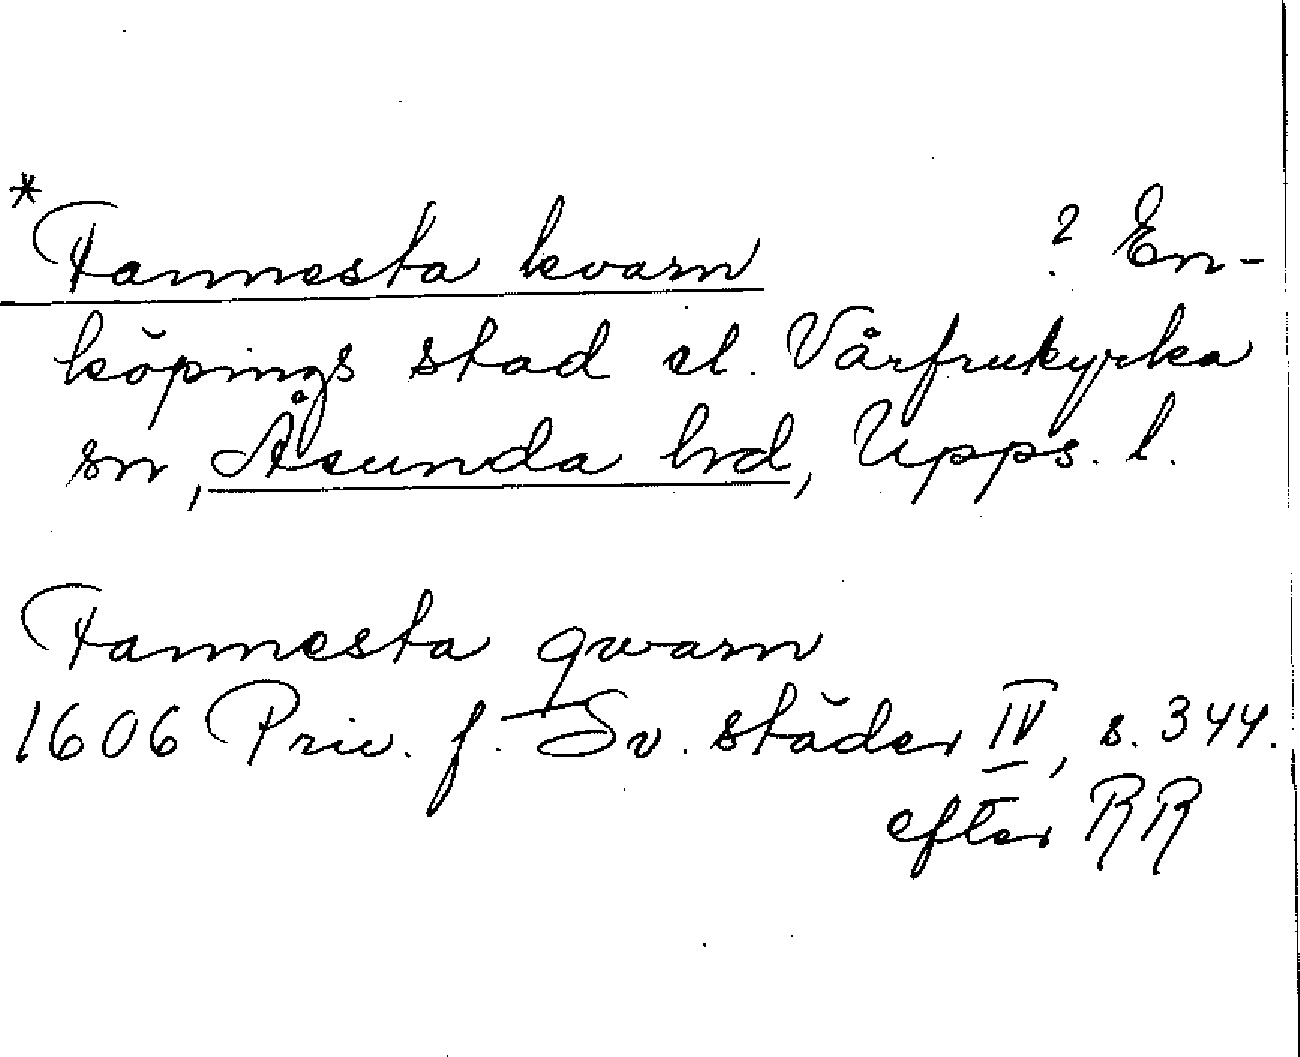 *Fannesta kvarn ? En-
köpings stad el. Vårfrukyrka
sn, Åsunda hrd, Upps. l.
Fannesta qvarn
1606 Priv. f. Sv. städer IV, s. 344.
efter RR